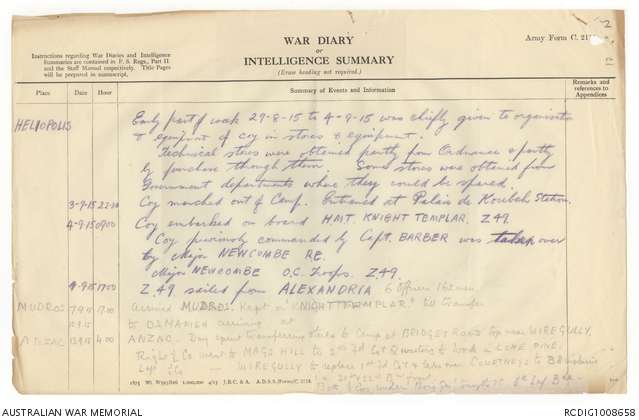 WAR DIARY
or
INTELLIGENCE SUMMARY
(Erase heading not required.)
Army Form C. 2118
2
Instructions regarding War Diaries and Intelligence
Summaries are contained in F. S. Regs., Part II
and the Staff Manual respectively. Title Pages
will be prepared in manuscript.
Place Date Hour Summary of Events and Information Remarks and references to Appendices
HELIOPOLIS Early part of week 29-8-15 to 4-9-15 was chiefly given to organisation
& equipment of coy in stores & equipment.
Technical stores were obtained partly from Ordnance & partly
by purchase though them. Some stores was obtained from
Government departments where they could be spared.
3-9-15 22.30 Coy marched out of Camp. Entrained at Palais de Koubeh Station.
4-9-15 0900 Coy embarked on board HMT KNIGHT TEMPLAR. Z49
Coy previously commanded by Capt. BARBER was taken over
by Major NEWCOMBE RE.
Major NEWCOMBE O.C. Troops. Z49.
4-9-15 1700 Z.49 sailed from ALEXANDRIA 6 Officers
MUDROS 7.9.15 17.00 arrived MUDROS. Kept on "KNIGHT TEMPLAR" till transfer
to arriving at
ANZAC 13.9.15 4.00 ANZAC. Day spent transferring stores to Camp at BRIDGES ROAD top near WIREGULLY.
Right of Co went to HILL to 2nd Fd Cy & working to in LONE PINE.
Left WIREGULLY to replace 1st Fd Cy & take over COURTNEYS to
1875 Wt. W593/826 1,000,000 4/15 J.B.C. & A. A.D.S.S./Forms/C. 2118.
AUSTRALIAN WAR MEMORIAL
RCDIG1008658